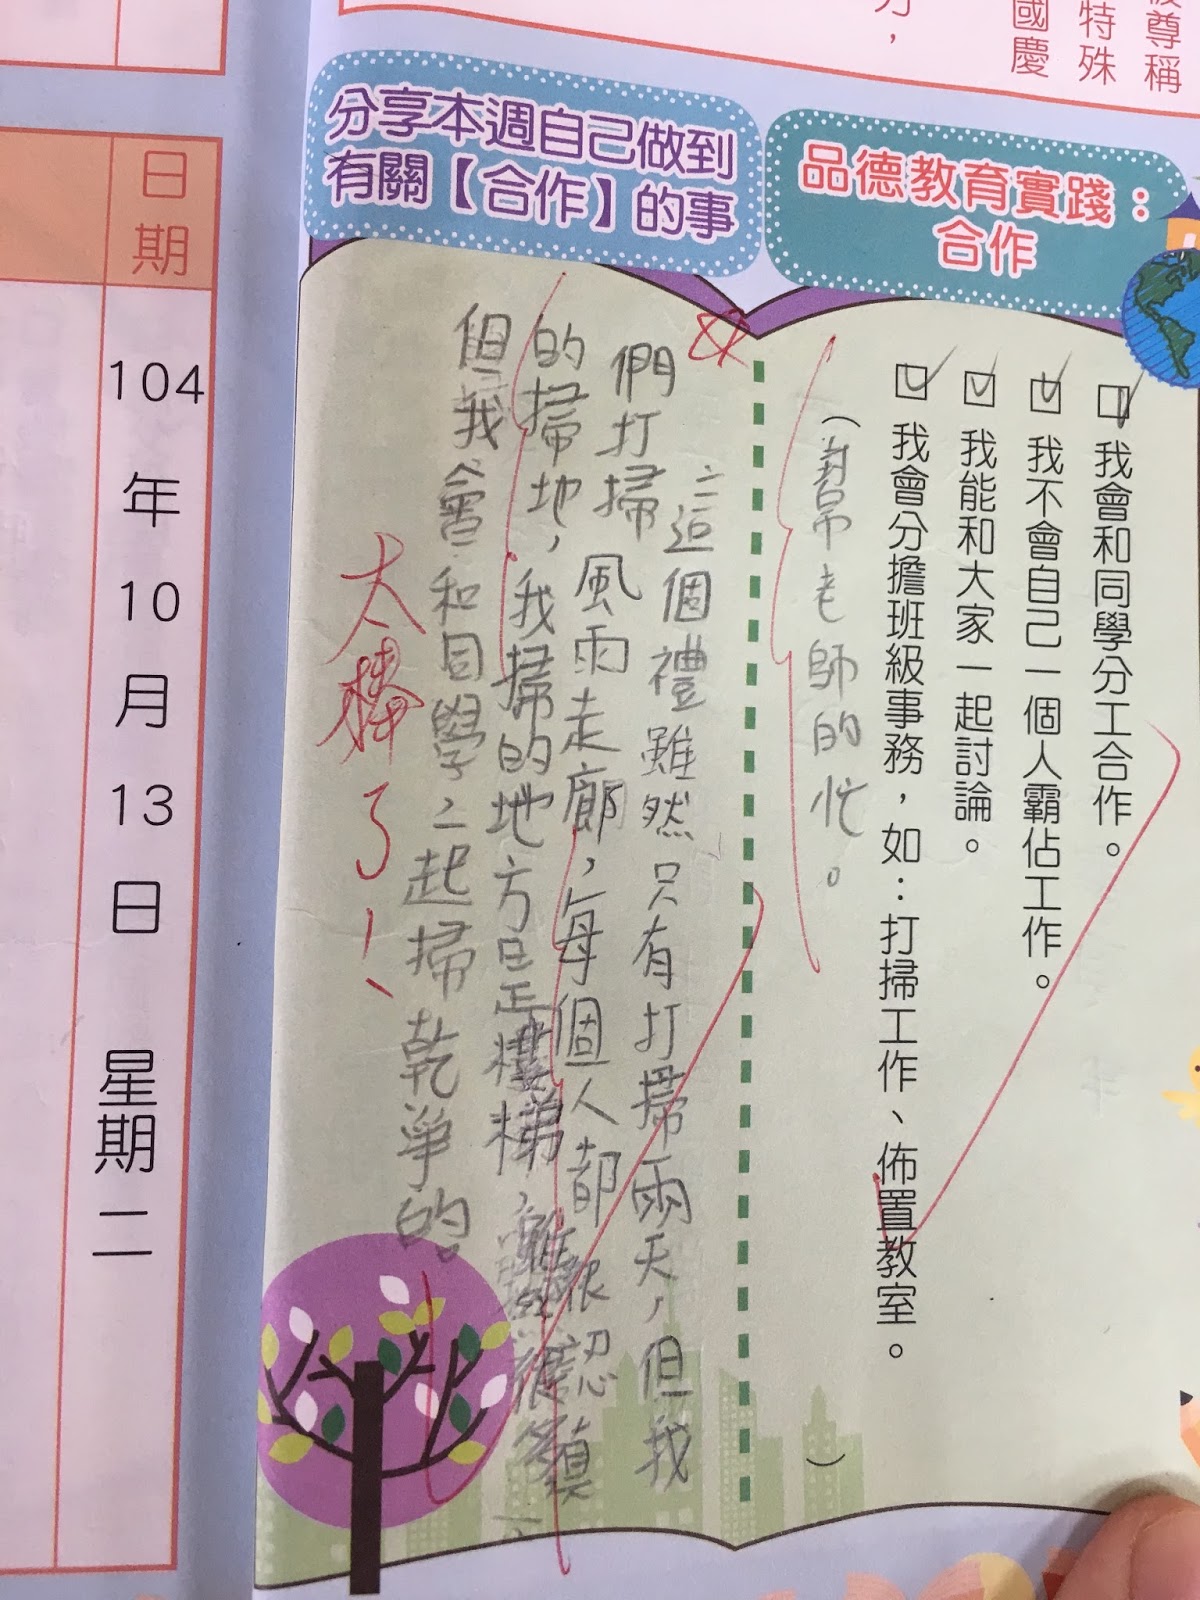 被尊稱
特殊
國慶
力，
品德教育實踐：
合作
□我會和同學分工合作。
□我不會自己一個人霸佔工作。
□我能和大家一起討論。
□我會分擔班級事務，如：打掃工作、佈置教室。
（幫老師的忙。）
分享本週自己做到
有關【合作】的事
這個禮雖然只有打掃雨天，但我
們打掃風雨走廊，每個人都很認真
的掃地，我掃的地方是樓梯，雖然很
但我會和同學一起掃乾淨的。
太棒了！
日期
104年10月13日 星期二